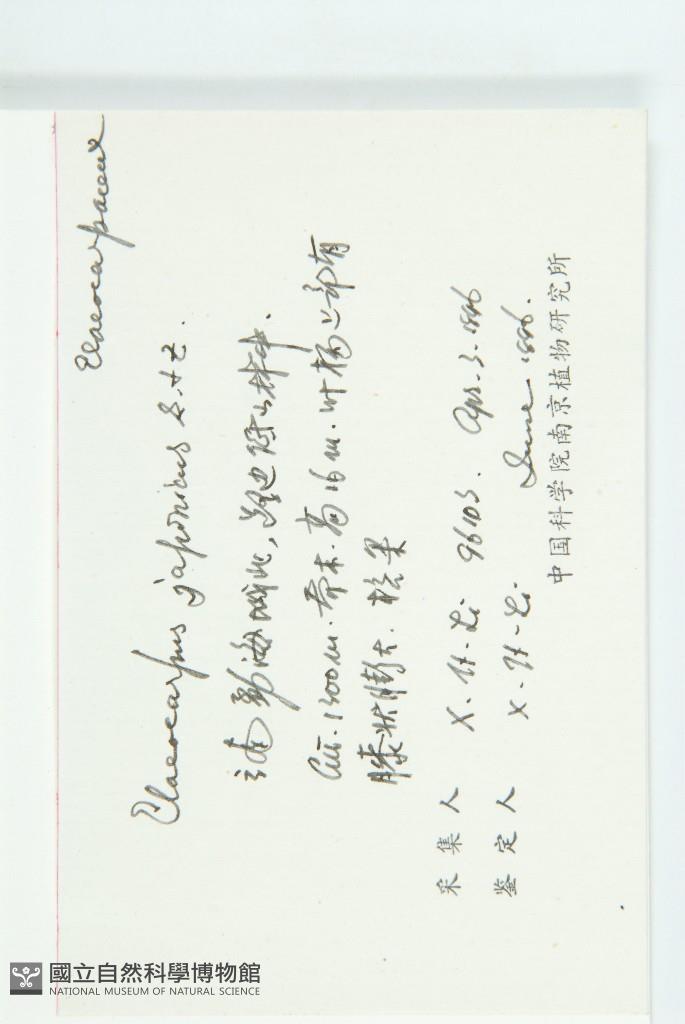 Elaeocarpaceae
Elaeocarpus japonicus S. et Z.
云南勐海城北, 路边阔叶林中.
Alt. 1300m. 乔木. 高16m. 叶柄上部有
膝状膨大. 核果
采集人 X.-H. Li 96103. Apr. 3. 1996
鉴定人 X.-H. Li June 1996.
中国科学院南京植物研究所
國立自然科學博物館
NATIONAL MUSEUM OF NATURAL SCIENCE